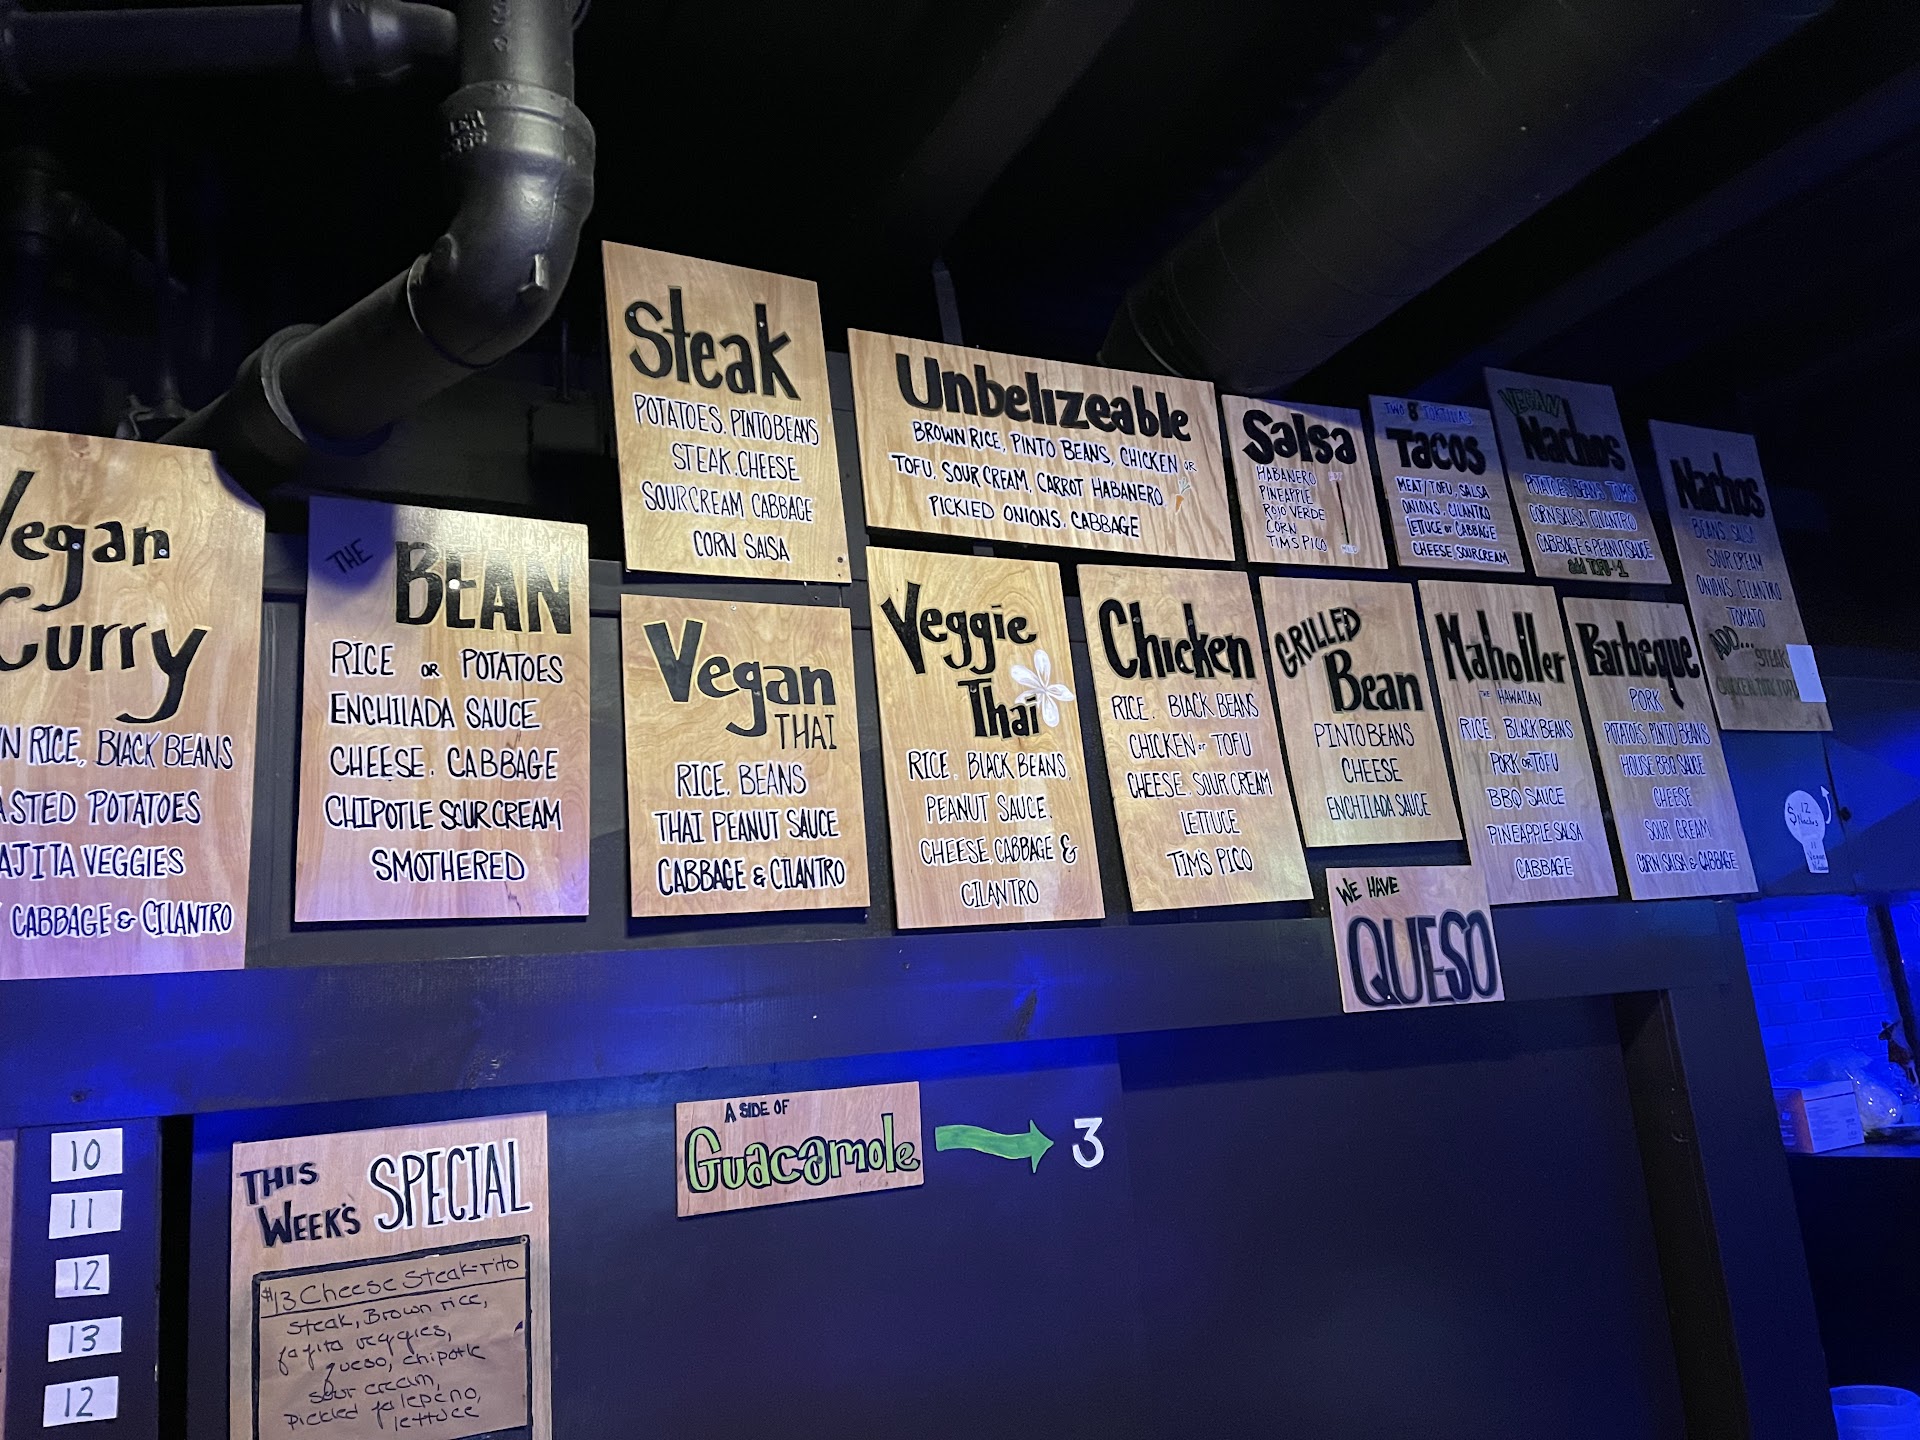 Vegan
Curry
RICE, BLACK BEANS
POTATOES
VEGGIES
CABBAGE & CILANTRO
THE
BEAN
RICE OR POTATOES
ENCHILADA SAUCE
CHEESE. CABBAGE
CHIPOTLE SOUR CREAM
SMOTHERED
Steak
POTATOES. PINTO BEANS
STEAK. CHEESE
SOUR CREAM CABBAGE
CORN SALSA
Vegan
THAI
RICE. BEANS
THAI PEANUT SAUCE
CABBAGE & CILANTRO
Unbelizeable
BROWN RICE, PINTO BEANS, CHICKEN OR
TOFU, SOUR CREAM, CARROT HABANERO
PICKLED ONIONS, CABBAGE
Veggie
Thai
RICE. BLACK BEANS,
PEANUT SAUCE.
CHEESE, CABBAGE &
CILANTRO
Chicken
RICE. BLACK BEANS
CHICKEN OR TOFU
CHEESE. SOUR CREAM
LETTUCE
TIM'S PICO
Salsa
HABANERO
PINEAPPLE
ROJO VERDE
CORN
TIMS PICO
GRILLED
Bean
PINTO BEANS
CHEESE
ENCHILADA SAUCE
TWO 8" TORTILLAS
TACOS
MEAT/TOFU, SALSA
ONIONS, CILANTRO
LETTUCE OR CABBAGE
CHEESE, SOUR CREAM
Maholler
THE HAWAIIAN
RICE, BLACK BEANS
PORK OR TOFU
BBQ SAUCE
PINEAPPLE SALSA
CABBAGE
VEGAN
Nachos
POTATOES BEANS TOMS
CORN SALSA CILANTRO
CABBAGE & PEANUT SAUCE
Barbeque
PORK
POTATOES, PINTO BEANS
HOUSE BBQ SAUCE
CHEESE
SOUR CREAM
CORN SALSA & CABBAGE
Nachos
BEANS, SALSA
SOUR CREAM
ONIONS, CILANTRO
TOMATO
ADD... STEAK
$ 12
Nachos
11
WE HAVE
QUESO
A SIDE OF
Guacamole
3
10
11
12
13
12
THIS
WEEK'S SPECIAL
$13 Cheese Steak-rito
Steak, Brown rice,
fajita veggies,
queso, chipotle
sour cream,
pickled jalepeno,
lettuce